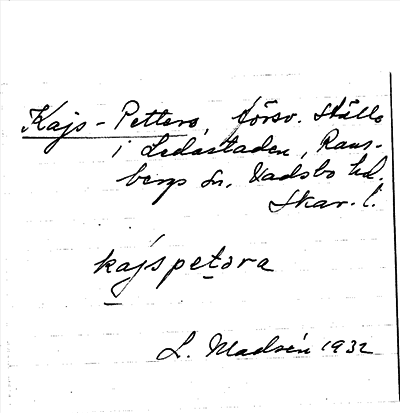 Kajs-Petters, försv. ställe
i Ledastaden, Rans-
bergs sn, Vadsbo hd.
Skar. l.
kajspetora
L. Madsén 1932